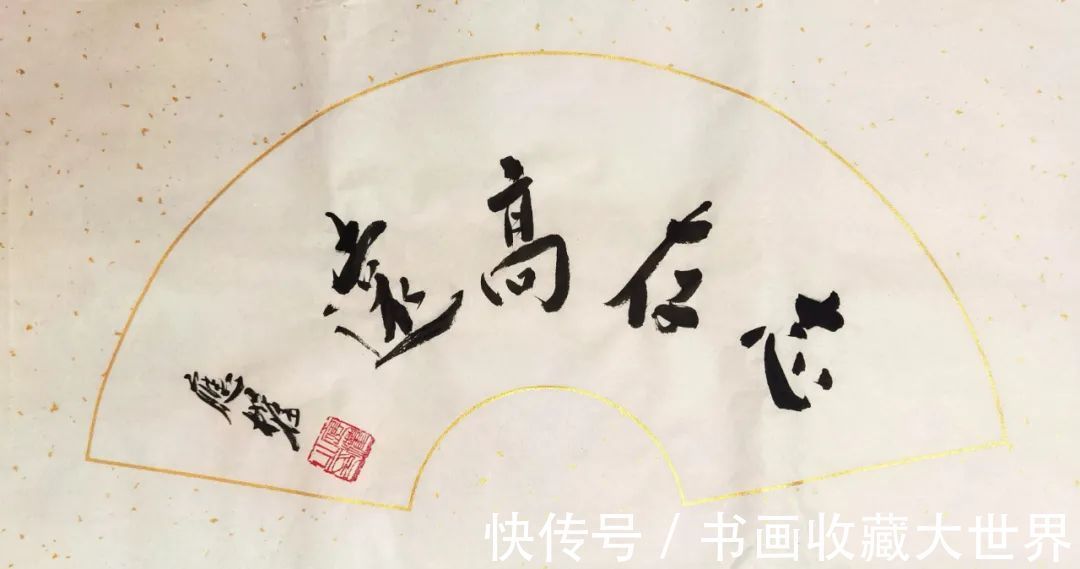 志存高遠
應
快传号 / 书画收藏大世界